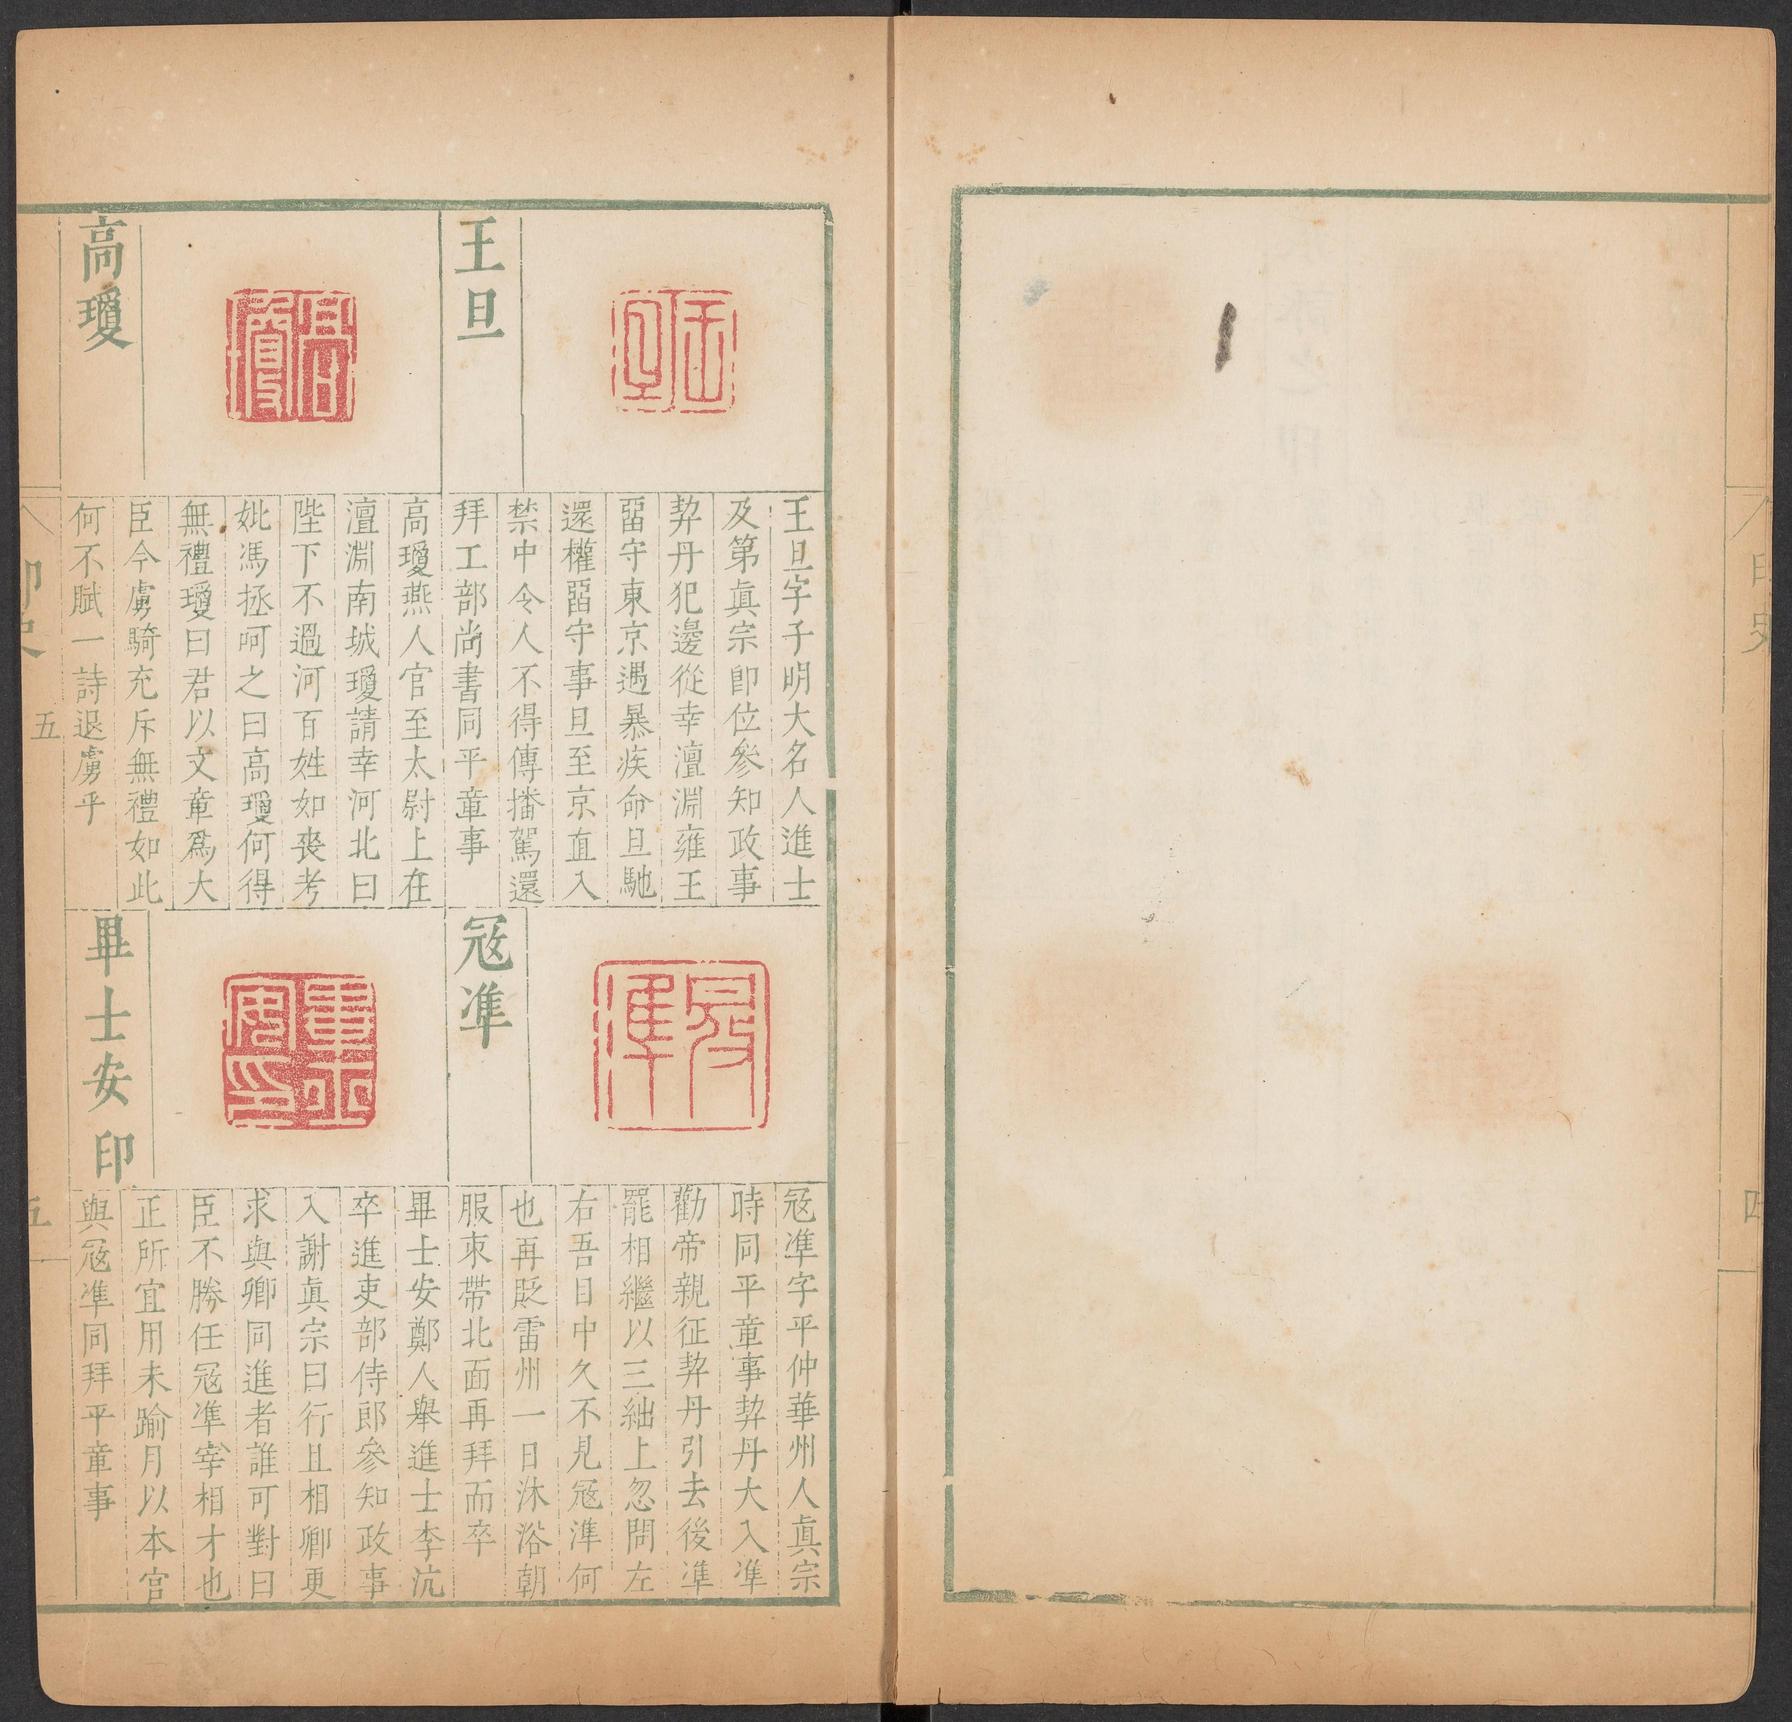 王旦
王旦字子明大名人進士
及第眞宗卽位參知政事
契丹犯邊從幸澶淵雍王
畱守東京遇暴疾命旦馳
還權畱守事旦至京直入
禁中令人不得傳播駕還
拜工部尚書同平章事
高瓊
高瓊燕人官至太尉上在
澶淵南城瓊請幸河北曰
陛下不過河百姓如喪考
妣馮拯呵之曰高瓊何得
無禮瓊曰君以文章爲大
臣今虜騎充斥無禮如此
何不賦一詩退虜乎
冦準
冦準字平仲華州人眞宗
時同平章事契丹大入準
勸帝親征契丹引去後準
罷相繼以三絀上忽問左
右吾目中久不見冦準何
也再貶雷州一日沐浴朝
服束帶北面再拜而卒
畢士安印
畢士安鄭人舉進士李沆
卒進吏部侍郎參知政事
入謝眞宗曰行且相卿更
求與卿同進者誰可對曰
臣不勝任冦準宰相才也
正所宜用未踰月以本官
與冦準同拜平章事
印史
五
五
印史
四